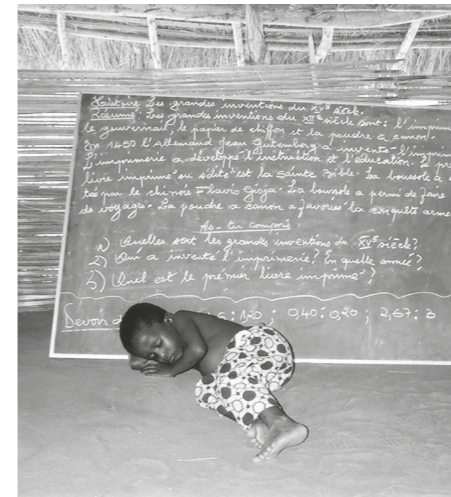 Histoire Les grandes inventions du XVe siècle.
Résumé: Les grandes inventions du XVe siècle sont: l'imprim
le gouvernail, le papier de chiffon et la poudre à canon.
En 1450 l'Allemand Jean Gutemberg a inventé l'imprim
L'imprimerie a développé l'instruction et l'éducation. Le
livre imprimé ou édité est la Sainte Bible. La boussole a
tée par le chinois Flavio Gioja. La boussole a permi de faire
de voyages. La poudre à canon a favorisé la conquête armé
As-tu compris
1) Quelles sont les grandes inventions du XVe siècle?
2) Qui a inventé l'imprimerie? En quelle année?
3) Quel est le prémier livre imprimé?
Devoir 1,20 ; 0,40 : 0,20 ; 2,67 : 3